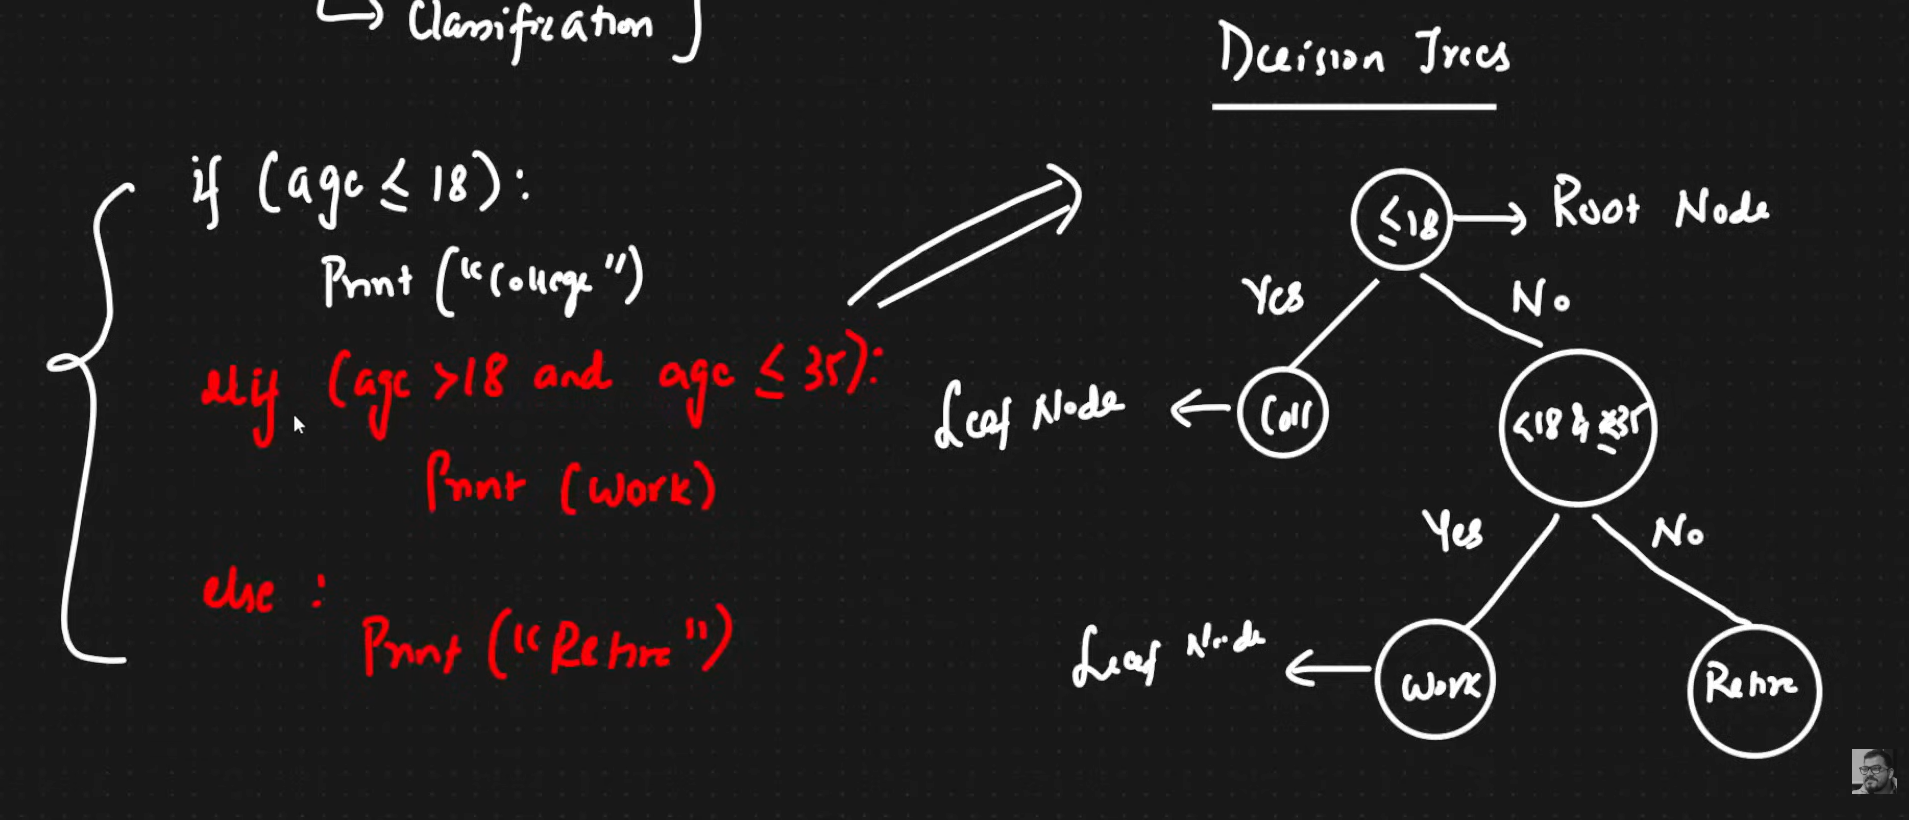 ↳ Classification ]
Decision Trees
if (age ≤ 18):
Print ("College")
elif (age >18 and age ≤ 35):
Print (Work)
else :
Print ("Retire")
≤18 → Root Node
Yes
No
Leaf Node ← Coll
<18 & ≤35
Yes
No
Leaf Node ← Work
Retire